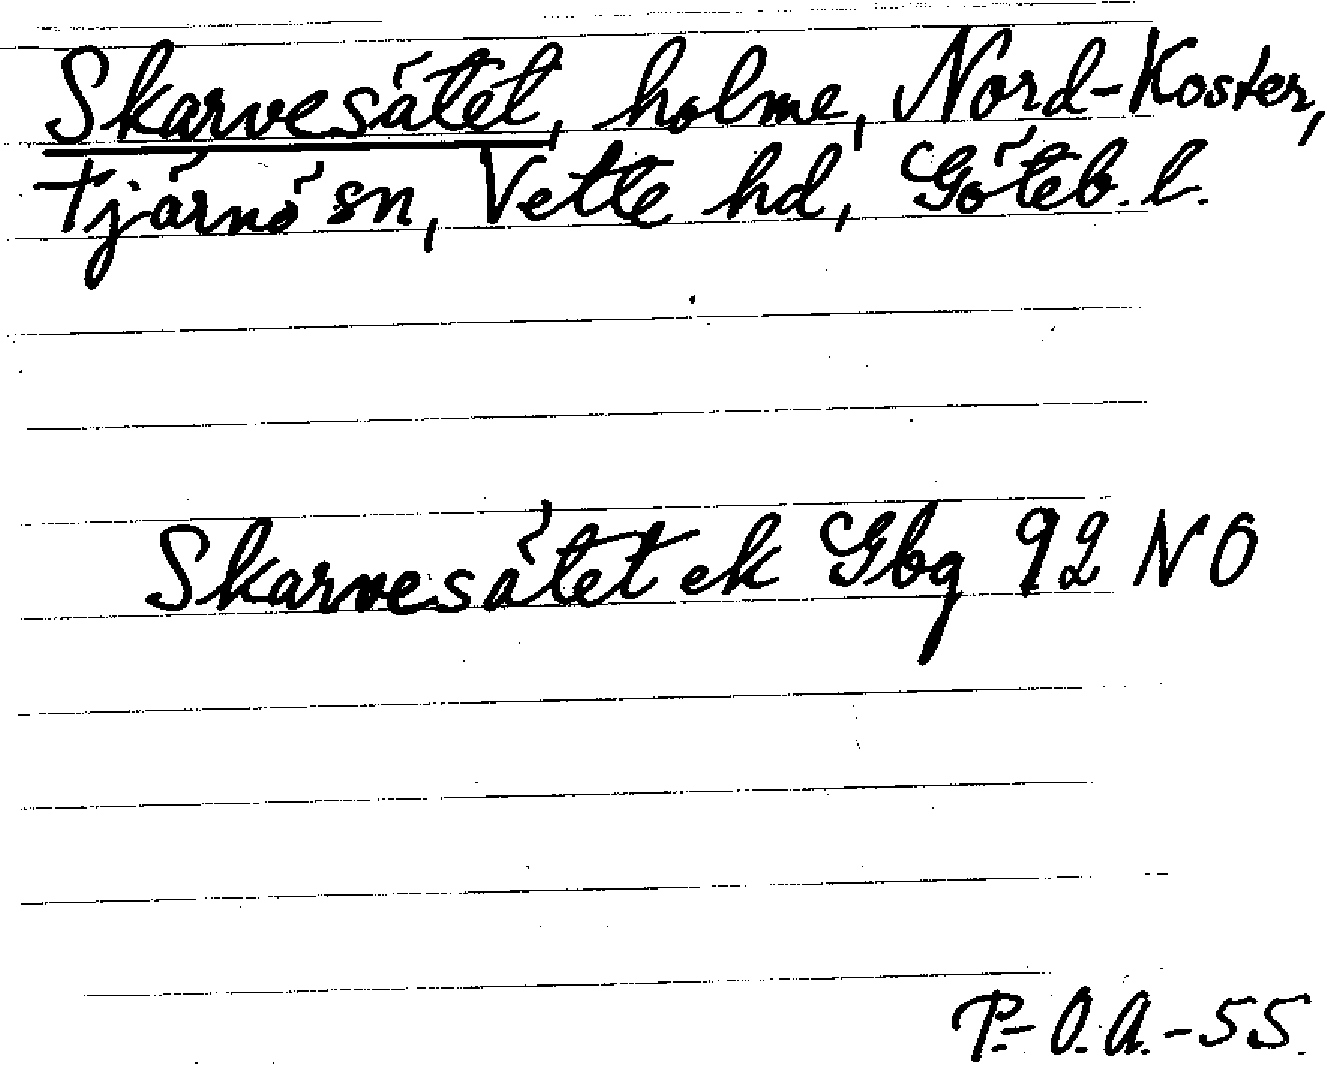 Skarvesätet, holme, Nord-Koster,
Tjärnö sn, Vette hd, Göteb. l.
Skarvesätet ek Gbg 92 NO
P.-O.A.-55.